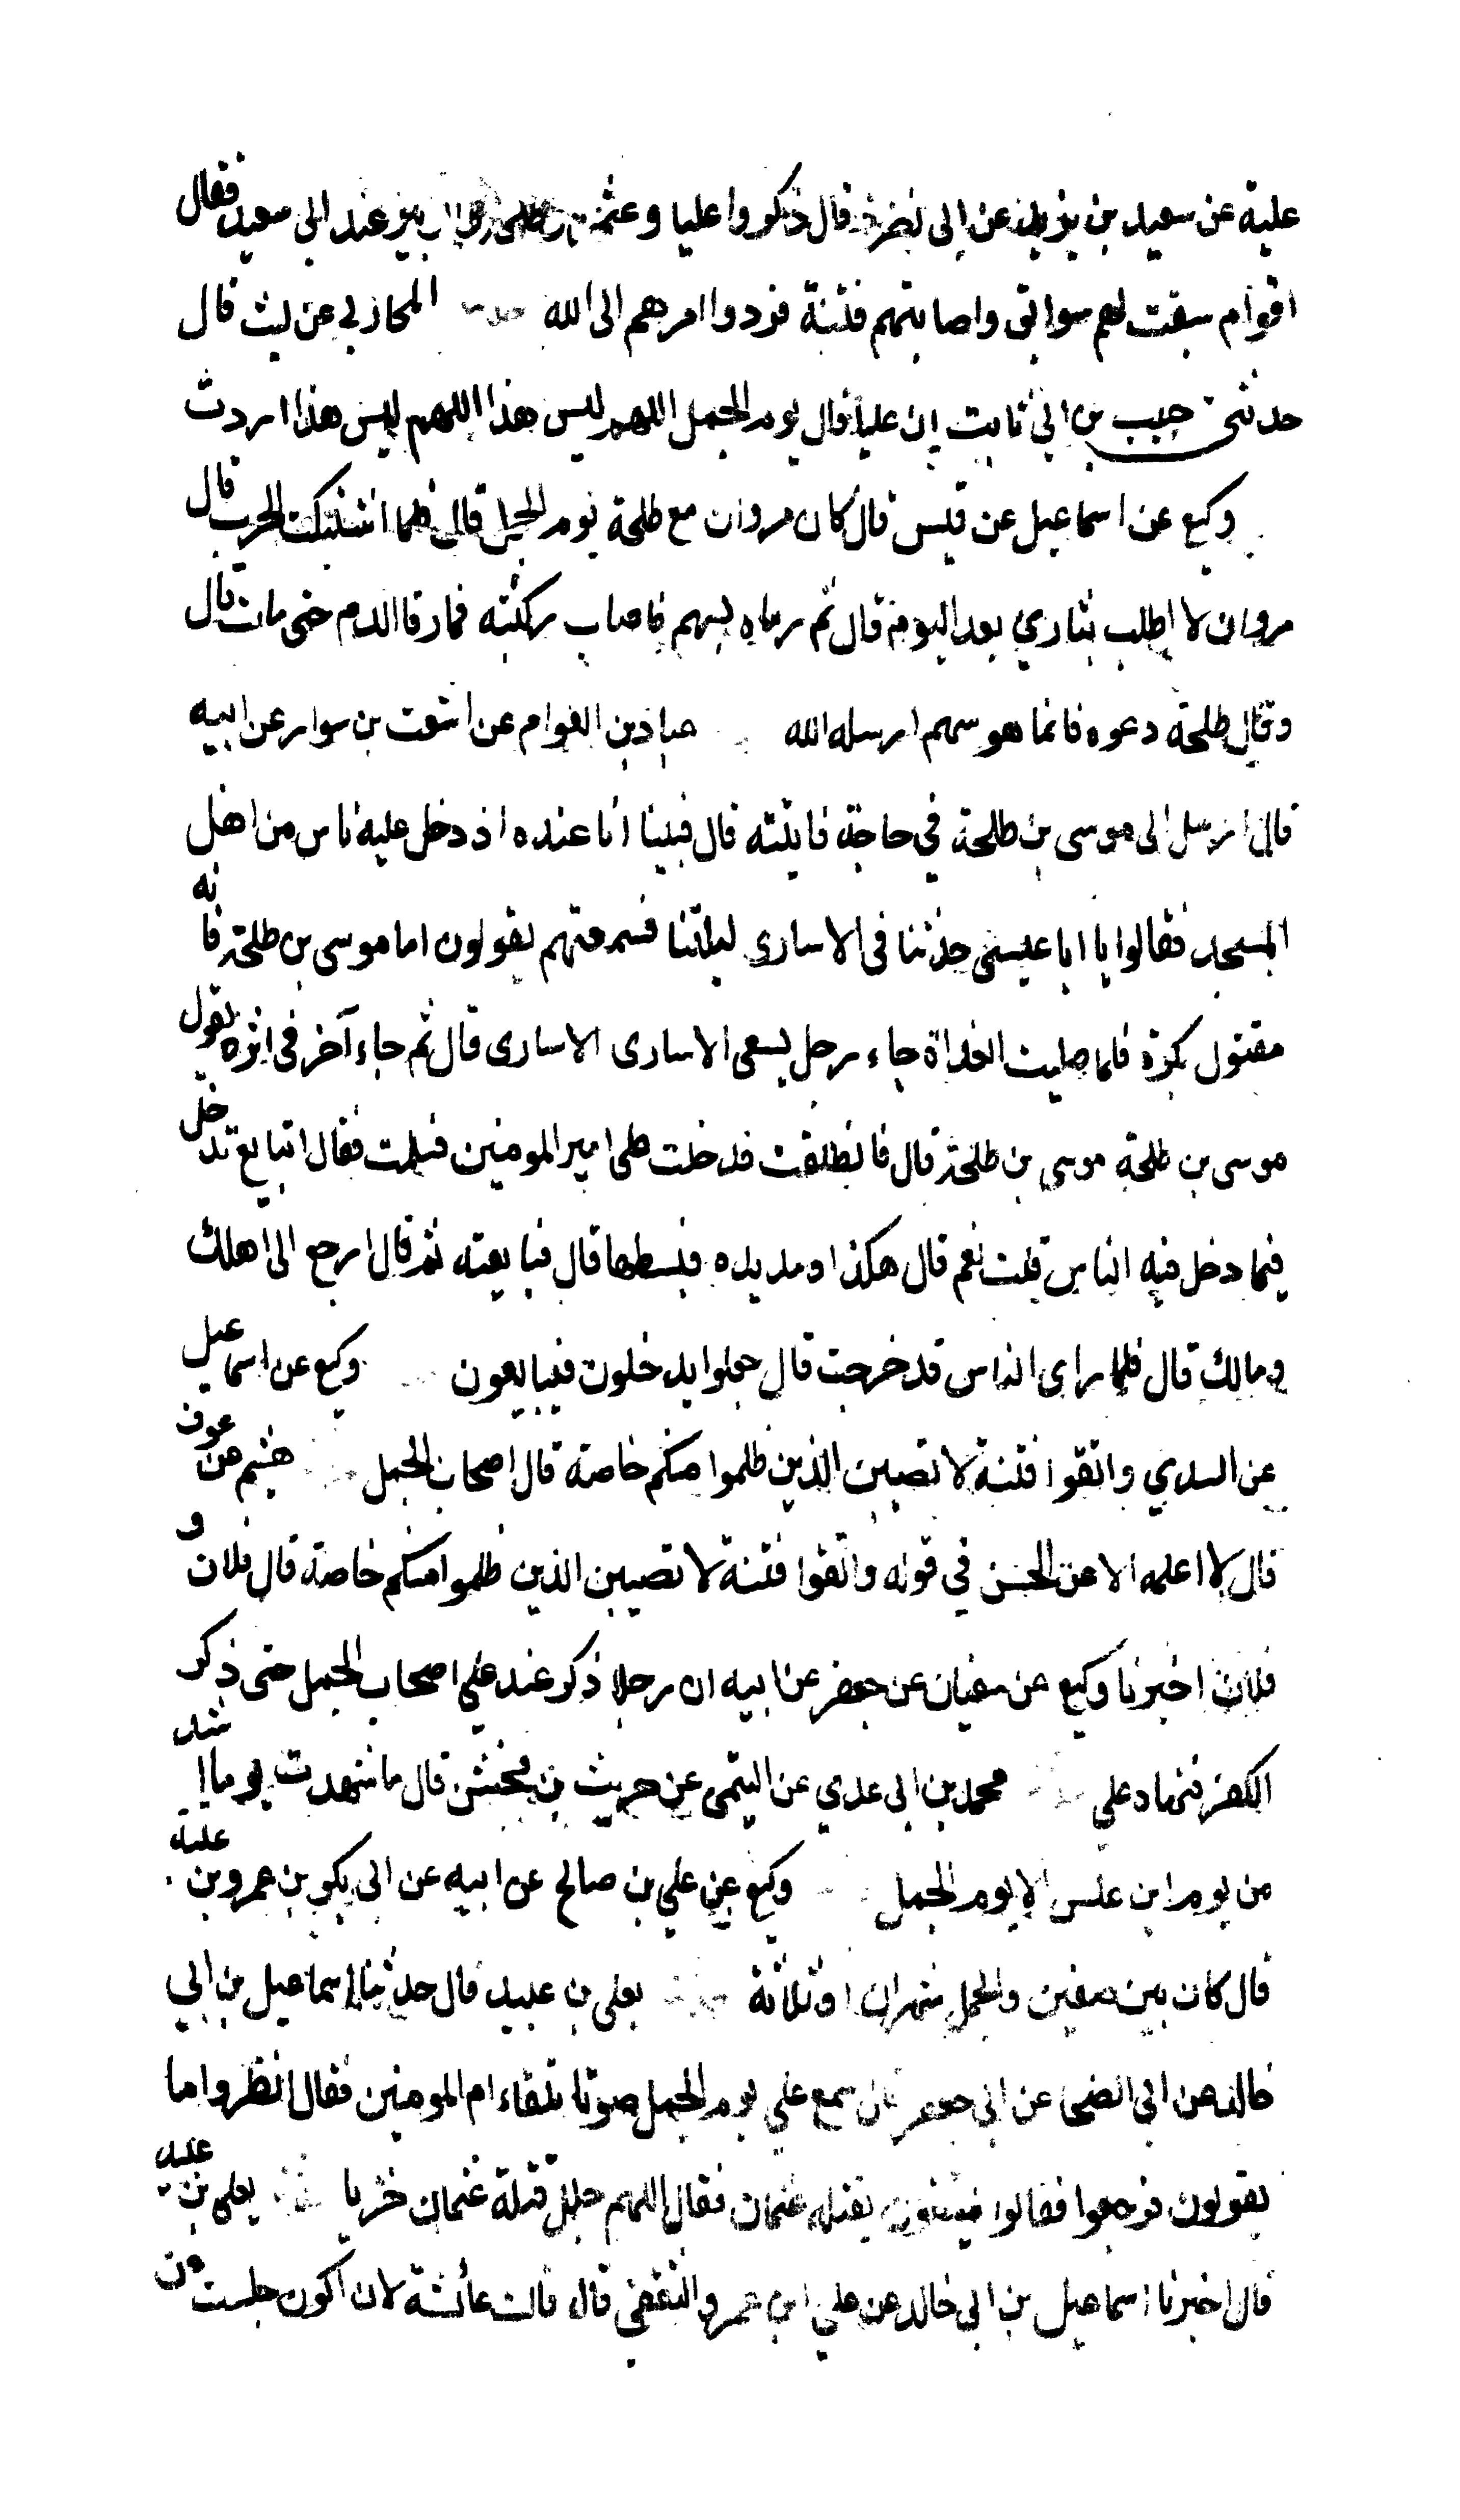 علية عن سعيد بن يزيد عن ابى نضرة قال ذكروا عليا وعثمن وطلحة والزبير عند ابى سعيد فقال
اقوام سبقت لهم سوابق واصابتهم فتنة فردوا امرهم الى الله حدثنا المحاربي عن ليث قال
حدثنى حبيب بن ابى ثابت ان عليا قال يوم الجمل اللهم ليس هذا اللهم ليس هذا اردت
وكيع عن اسماعيل عن قيس قال كان مروان مع طلحة يوم الجمل قال فلما اشتبكت الحرب قال
مروان لا اطلب بثاري بعد اليوم قال ثم رماه بسهم فاصاب ركبته فما رقا الدم حتى مات قال
وقال طلحة دعوه فانما هو سهم ارسله الله عباد بن العوام عن اشعث بن سوار عن ابيه
قال ارسل الى موسى بن طلحة في حاجة فاتيته قال فبينا انا عنده اذ دخل عليه ناس من اهل
المسجد فقالوا يا ابا عيسى حدثنا فى الاسارى ليلتنا فسمعتهم يقولون اما موسى بن طلحة فانه
مقتول بكرة فلما صليت الغداة جاء رجل يسعى الاسارى الاسارى قال ثم جاء آخر فى اثره يقول
موسى بن طلحة موسى بن طلحة قال فانطلقت فدخلت على امير المومنين فسلمت فقال اتبايع تدخل
فيما دخل فيه الناس قلت نعم قال هكذا ومد يده فبسطها قال فبايعته ثم قال ارجع الى اهلك
ومالك قال فلما راى الناس قد خرجت قال جعلوا يدخلون فيبايعون وكيع عن اسماعيل
عن السدي واتقوا فتنة لا تصيبن الذين ظلموا منكم خاصة قال اصحاب الجمل هشيم عن عوف
قال لا اعلمه الا عن الحسن في قوله واتقوا فتنة لا تصيبن الذين ظلموا منكم خاصة قال فلان و
فلان اخبرنا وكيع عن سفيان عن جعفر عن ابيه ان رجلا ذكر عند علي اصحاب الجمل حتى ذكر
الكفر فنهاه علي محمد بن ابى عدي عن التيمى عن حريث بن مخش قال ما شهدت يوما اشد
من يوم ابن علس الا يوم الجمل وكيع عن علي بن صالح عن ابيه عن ابى بكر بن عمرو بن علية
قال كان بين صفين والجمل شهران او ثلاثة يعلى بن عبيد قال حدثنا اسماعيل بن ابي
خالد عن ابي الضحى عن ابى جعفر قال سمع علي يوم الجمل صوتا تلقاء ام المومنين فقال انظروا ما
يقولون فرجعوا فقالوا يهتفون بقتلة عثمان فقال اللهم جلل قتلة عثمان خزيا يعلى بن عبيد
قال اخبرنا اسماعيل بن ابى خالد عن علي ابن عمرو الثقفي قال قالت عائشة لان اكون جلست عن